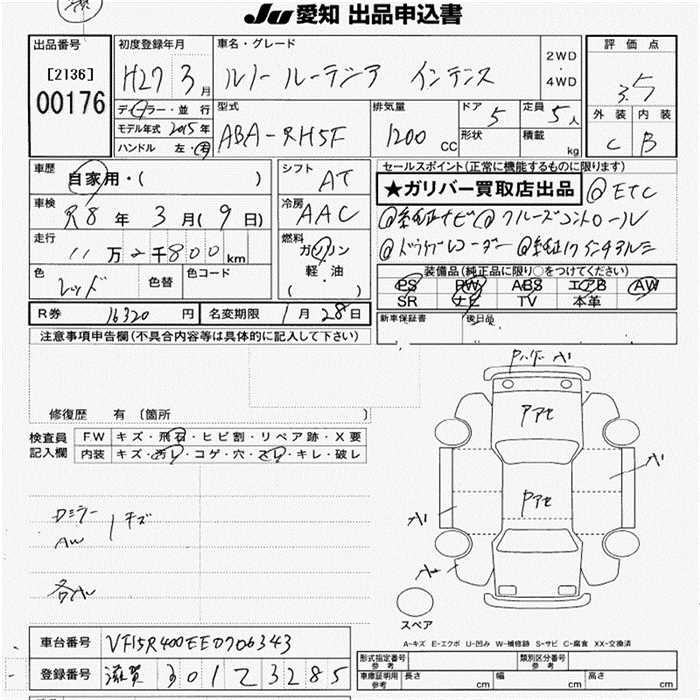 JU 愛知 出品申込書
出品番号
[2136]
00176
初度登録年月
H27 3月
ディーラー・並行
モデル年式 2015年
ハンドル 左・右
車名・グレード
ルノー ルーテシア インテンス
2WD
4WD
型式
ABA-RH5F
排気量
1200 CC
ドア 5
定員 5人
形状
積載 kg
評価点
3.5
外装 内装
C B
車歴
自家用・( )
車検
R8年 3月(9日)
走行
11万2千800km
色 レッド 色替 色コード
シフト
AT
冷房
AAC
燃料
ガソリン
軽・油
( )
セールスポイント(正常に機能するものに限ります)
★ガリバー買取店出品 @ETC
@純正ナビ@クルーズコントロール
@ドライブレコーダー@純正17インチアルミ
装備品(純正品に限り○をつけてください)
PS PW ABS エアB AW
SR ナビ TV 本革
R券 16320円 名変期限 1月28日
新車保証書 後日品
注意事項申告欄(不具合内容等は具体的に記入して下さい)
修復歴 有 〔箇所 〕
検査員
記入欄
FW キズ・飛石・ヒビ割・リペア跡・X要
内装 キズ・汚レ・コゲ・穴・スレ・キレ・破レ
Dミラー
AW
キズ
バンパー A1
アアセ
アアセ
A1
A1
スペア
A-キズ E-エクボ U-凹み W-補修跡 S-サビ C-腐食 XX-交換済
車台番号 VF15R400EED706343
登録番号 滋賀 301 て 3285
形式指定番号
参考
類別区分番号
参考
車庫証明用
参考
長さ cm 幅 cm 高さ cm